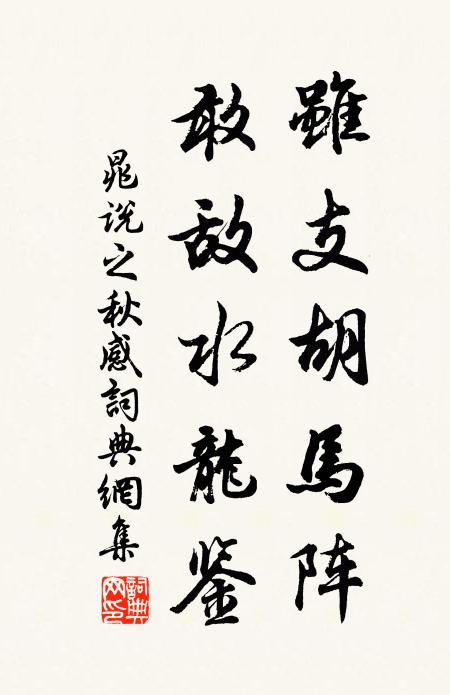 雖支胡馬阵
敢敌水龍鉴
晁说之秋感詞典網集
詞典网印